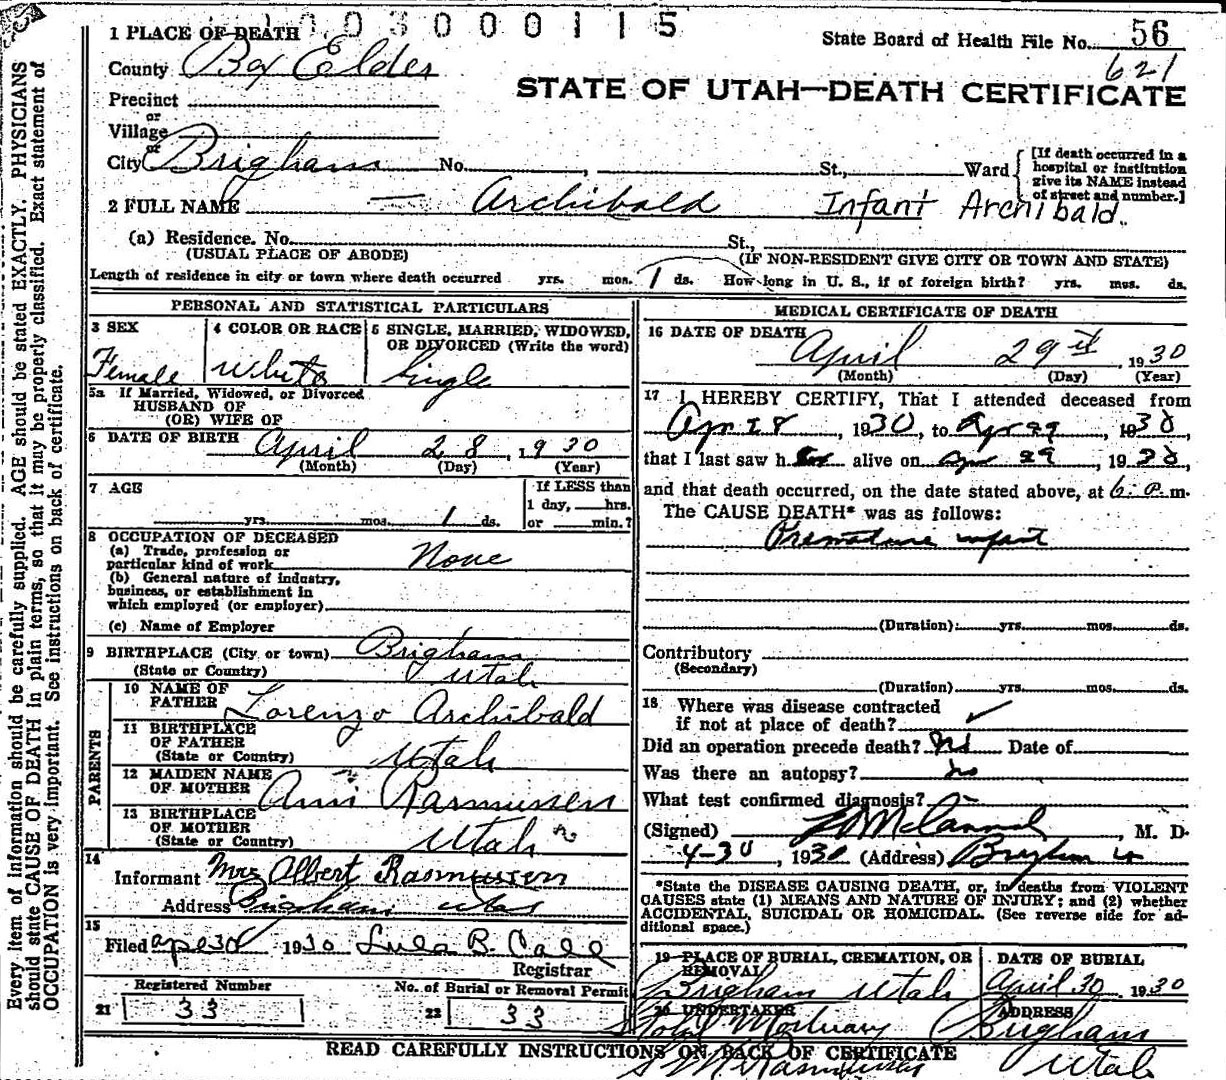 003000115
1 PLACE OF DEATH
State Board of Health File No. 56
621
County Box Elder
STATE OF UTAH—DEATH CERTIFICATE
Precinct
or
Village
or
City Brigham No. , St., Ward
[If death occurred in a hospital or institution give its NAME instead of street and number.]
2 FULL NAME — Archibald Infant Archibald.
(a) Residence. No. St.,
(USUAL PLACE OF ABODE) (IF NON-RESIDENT GIVE CITY OR TOWN AND STATE)
Length of residence in city or town where death occurred yrs. mos. 1 ds. How long in U. S., if of foreign birth? yrs. mos. ds.
PERSONAL AND STATISTICAL PARTICULARS
3 SEX
Female
4 COLOR OR RACE
White
5 SINGLE, MARRIED, WIDOWED,
OR DIVORCED (Write the word)
Single
5a If Married, Widowed, or Divorced
HUSBAND OF
(OR) WIFE OF
6 DATE OF BIRTH April 28, 1930
(Month) (Day) (Year)
7 AGE
yrs. mos. 1 ds.
If LESS than
1 day, hrs.
or min.?
8 OCCUPATION OF DECEASED
(a) Trade, profession or
particular kind of work None
(b) General nature of industry,
business, or establishment in
which employed (or employer)
(c) Name of Employer
9 BIRTHPLACE (City or town) Brigham
(State or Country) Utah
PARENTS
10 NAME OF
FATHER Lorenzo Archibald
11 BIRTHPLACE
OF FATHER
(State or Country) Utah
12 MAIDEN NAME
OF MOTHER Ann Rasmussen
13 BIRTHPLACE
OF MOTHER
(State or Country) Utah
14
Informant Mrs Albert Rasmussen
Address Brigham Utah
15
Filed Apr 30 1930 Lula B. Call
Registrar
Registered Number No. of Burial or Removal Permit
21 33 22 33
MEDICAL CERTIFICATE OF DEATH
16 DATE OF DEATH
April 29th, 1930
(Month) (Day) (Year)
17 I HEREBY CERTIFY, That I attended deceased from
Apr 28, 1930, to Apr 29, 1930,
that I last saw her alive on Apr 29, 1930,
and that death occurred, on the date stated above, at 6 P.m.
The CAUSE DEATH* was as follows:
Premature infant
(Duration) yrs. mos. ds.
Contributory
(Secondary)
(Duration) yrs. mos. ds.
18 Where was disease contracted
if not at place of death?
Did an operation precede death? No Date of
Was there an autopsy? no
What test confirmed diagnosis? —
(Signed) McCann, M. D.
4-30, 1930 (Address) Brigham Ut
*State the DISEASE CAUSING DEATH, or, in deaths from VIOLENT
CAUSES state (1) MEANS AND NATURE OF INJURY; and (2) whether
ACCIDENTAL, SUICIDAL OR HOMICIDAL. (See reverse side for ad-
ditional space.)
19 PLACE OF BURIAL, CREMATION, OR
REMOVAL
Brigham Utah
DATE OF BURIAL
April 30, 1930
20 UNDERTAKER
Mortuary
ADDRESS
Brigham
Utah
READ CAREFULLY INSTRUCTIONS ON BACK OF CERTIFICATE
M Rasmussen
Every item of information should be carefully supplied. AGE should be stated EXACTLY. PHYSICIANS
should state CAUSE OF DEATH in plain terms, so that it may be properly classified. Exact statement of
OCCUPATION is very important. See instructions on back of certificate.